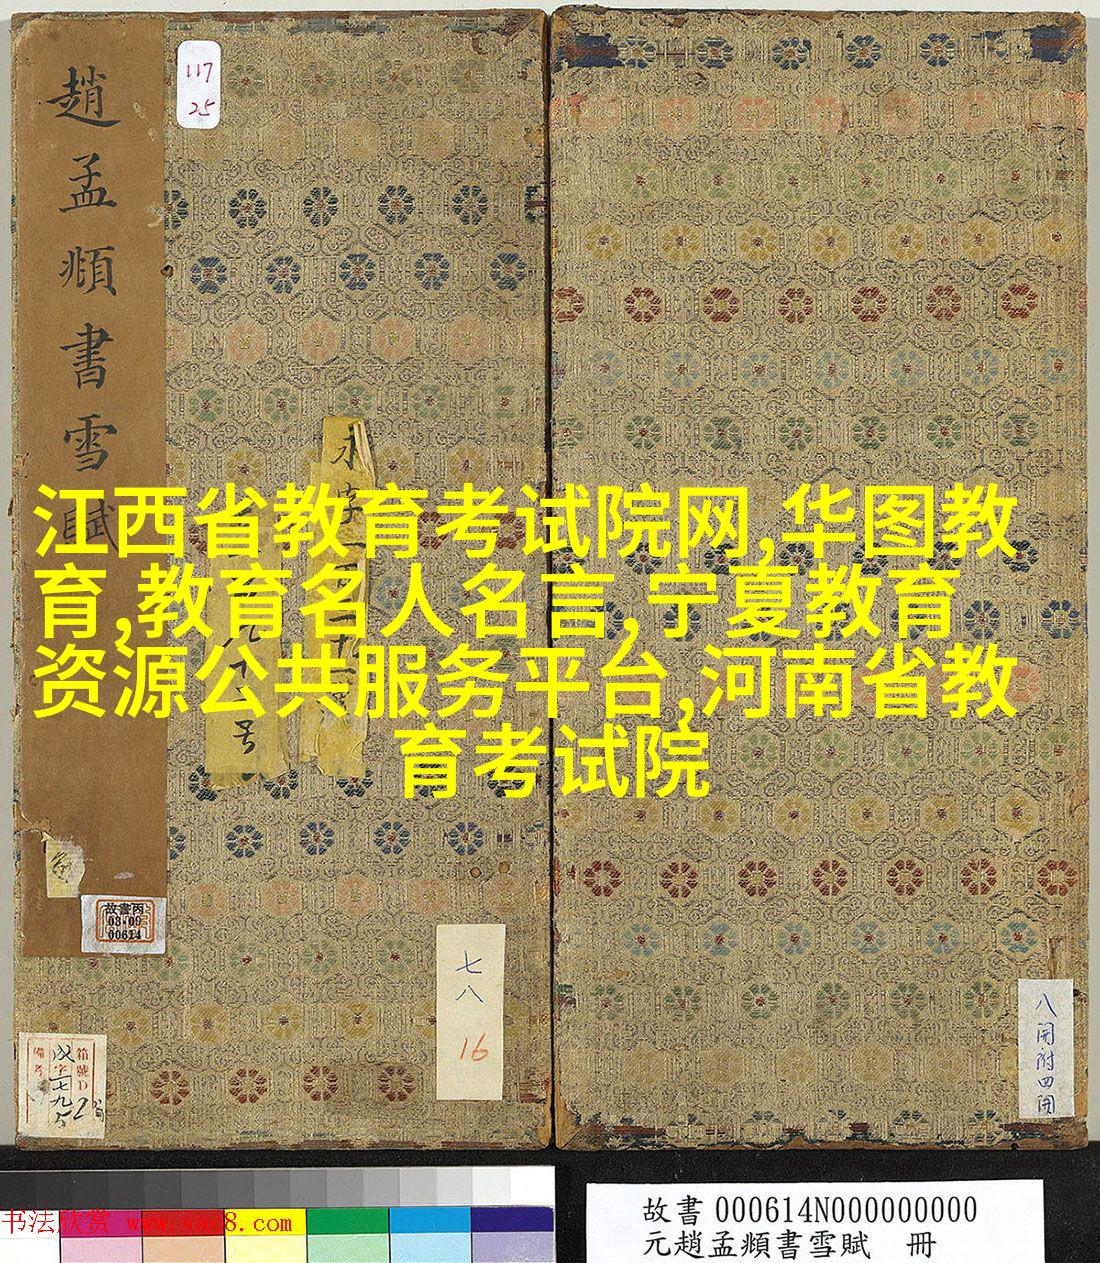 趙孟頫書雪賦
117
25
江西省教育考试院网,华图教
育,教育名人名言,宁夏教育
资源公共服务平台,河南省教
育考试院
号
故書丙
03-09
00614
七八
16
箱號D
備考
八開附四開
故書 000614N000000000
元趙孟頫書雪賦 冊
书法欣赏 www.yac8.com